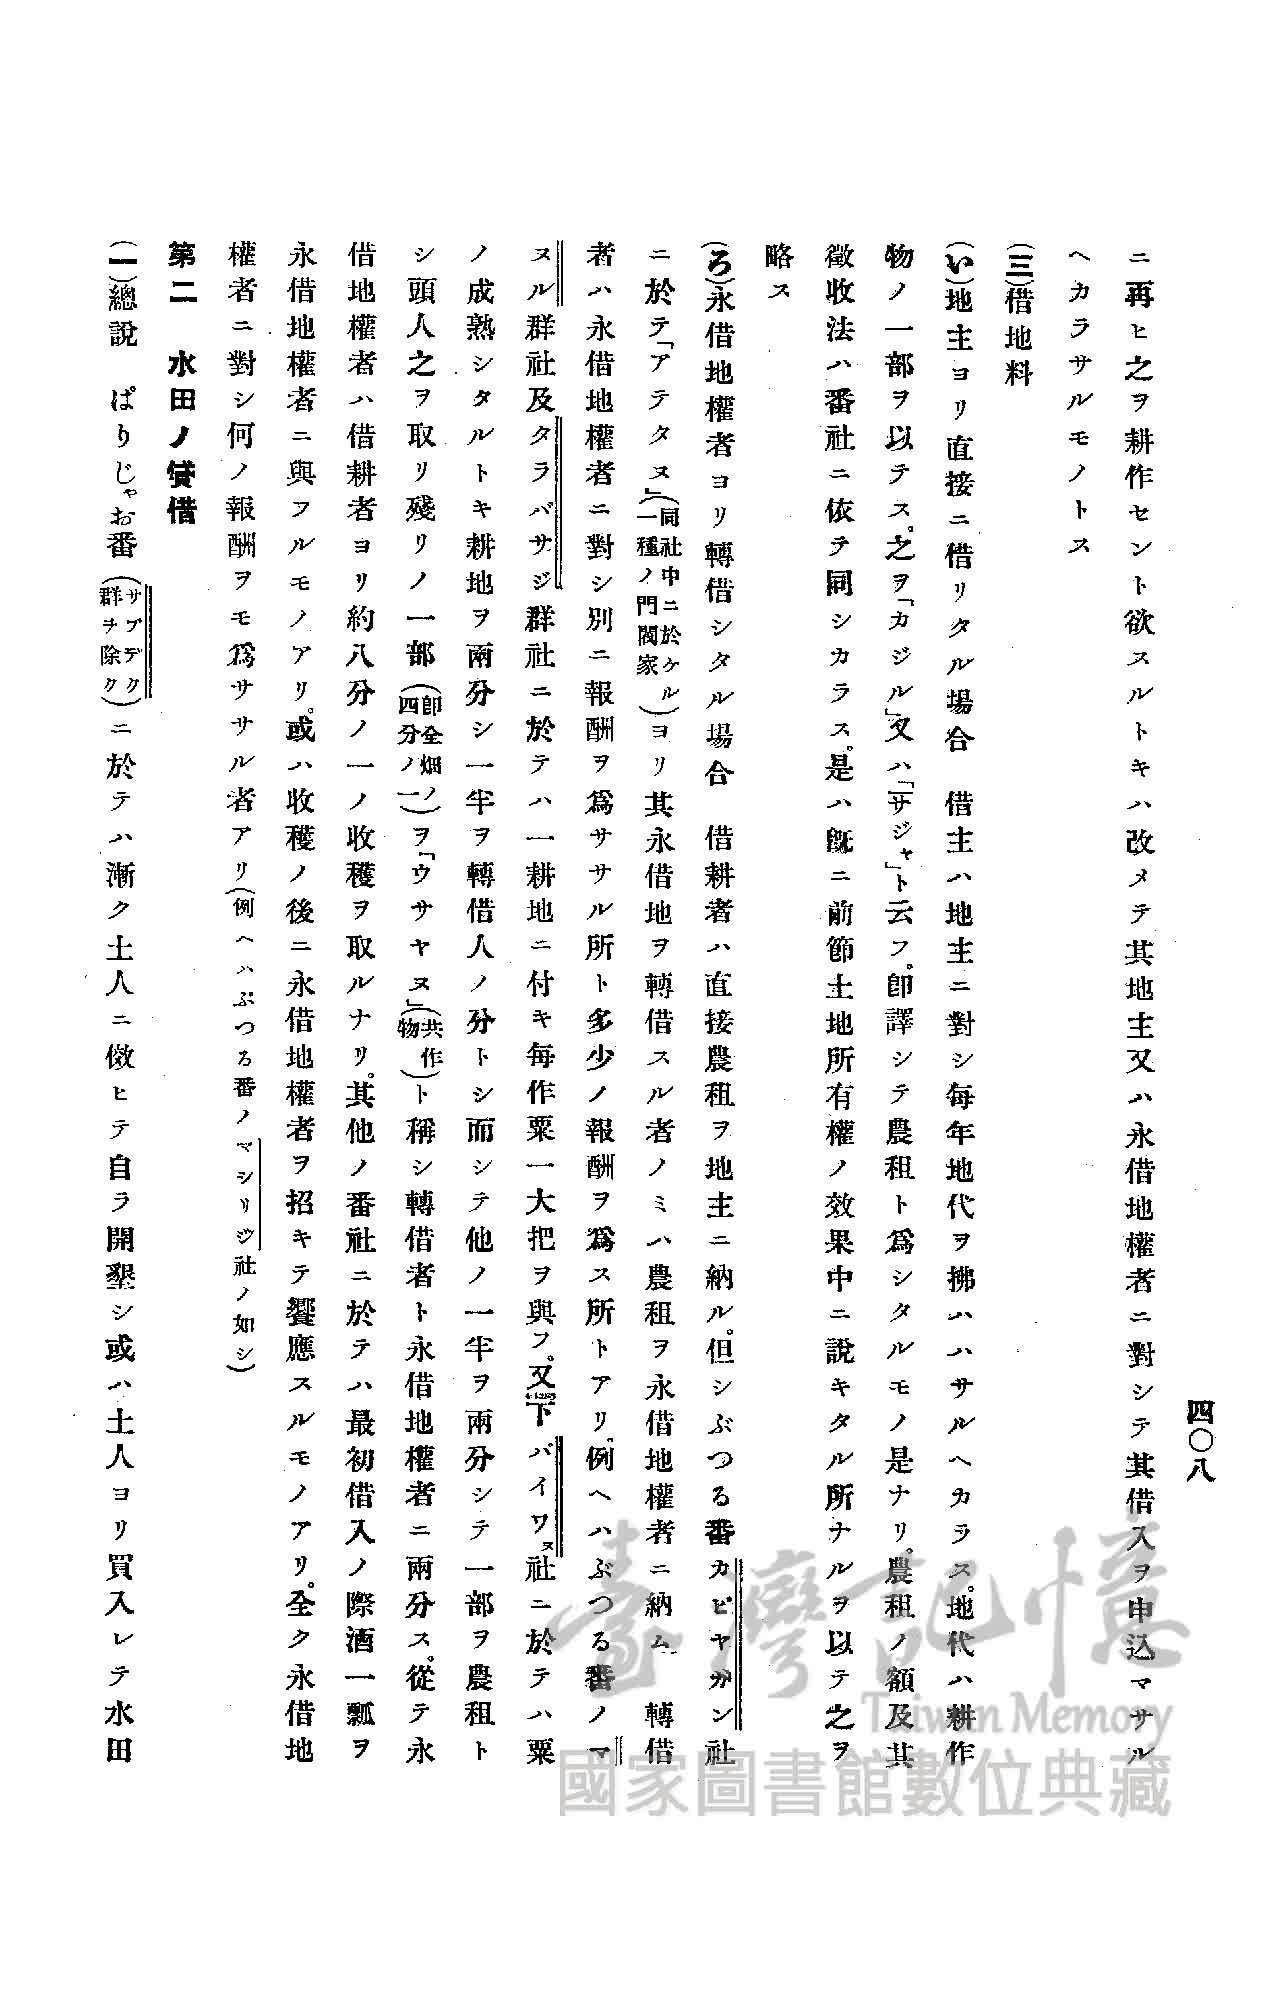 四〇八
ニ再ヒ之ヲ耕作セント欲スルトキハ改メテ其地主又ハ永借地權者ニ對シテ其借入ヲ申込マサル
ヘカラサルモノトス
(三)借地料
(い)地主ヨリ直接ニ借リタル場合　借主ハ地主ニ對シ每年地代ヲ拂ハハサルヘカラス。地代ハ耕作
物ノ一部ヲ以テス。之ヲ「カジル」又ハ「サジャ」ト云フ。卽譯シテ農租ト爲シタルモノ是ナリ。農租ノ額及其
徵收法ハ番社ニ依テ同シカラス。是ハ旣ニ前節土地所有權ノ效果中ニ說キタル所ナルヲ以テ之ヲ
略ス
(ろ)永借地權者ヨリ轉借シタル場合　借耕者ハ直接農租ヲ地主ニ納ル。但シぶつる番カピヤガン社
ニ於テ「アテタヌ」(同社中ニ於ケル一種ノ門閥家)ヨリ其永借地ヲ轉借スル者ノミハ農租ヲ永借地權者ニ納ム　轉借
者ハ永借地權者ニ對シ別ニ報酬ヲ爲ササル所ト多少ノ報酬ヲ爲ス所トアリ。例ヘハぶつる番ノマ
ヌル群社及タラバサジ群社ニ於テハ一耕地ニ付キ每作粟一大把ヲ與フ。又下バイワヌ社ニ於テハ粟
ノ成熟シタルトキ耕地ヲ兩分シ一半ヲ轉借人ノ分トシ而シテ他ノ一半ヲ兩分シテ一部ヲ農租ト
シ頭人之ヲ取リ殘リノ一部(卽全畑ノ四分ノ一)ヲ「ウサヤヌ」(共作物)ト稱シ轉借者ト永借地權者ニ兩分ス。從テ永
借地權者ハ借耕者ヨリ約八分ノ一ノ收穫ヲ取ルナリ。其他ノ番社ニ於テハ最初借入ノ際酒一瓢ヲ
永借地權者ニ與フルモノアリ。或ハ收穫ノ後ニ永借地權者ヲ招キテ饗應スルモノアリ。全ク永借地
權者ニ對シ何ノ報酬ヲモ爲ササル者アリ(例ヘハぶつる番ノマシリジ社ノ如シ)
第二　水田ノ貸借
(一)總說　ぱりじゃお番(サブデク群ヲ除ク)ニ於テハ漸ク土人ニ傚ヒテ自ラ開墾シ或ハ土人ヨリ買入レテ水田
臺灣記憶
Taiwan Memory
國家圖書館數位典藏